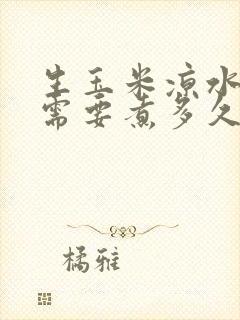 生玉米凉水
需要煮多久
橘雅